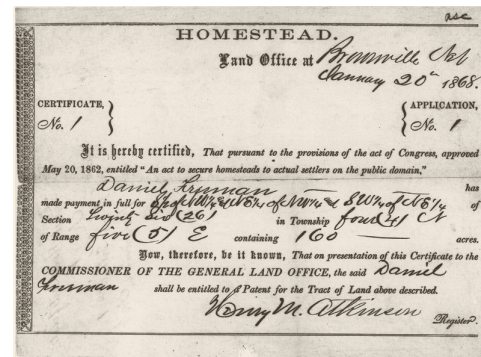 HOMESTEAD.
Land Office at Brownville Neb
January 20th 1868.
CERTIFICATE, } { APPLICATION,
No. 1 No. 1
It is hereby certified, That pursuant to the provisions of the act of Congress, approved
May 20, 1862, entitled "An act to secure homesteads to actual settlers on the public domain,"
Daniel Freeman has
made payment in full for S½ of NW¼ & NE¼ of NW¼ & SW¼ of NE¼ of
Section twenty six (26) in Township four (4) N
of Range five (5) E containing 160 acres.
Now, therefore, be it known, That on presentation of this Certificate to the
COMMISSIONER OF THE GENERAL LAND OFFICE, the said Daniel
Freeman shall be entitled to a Patent for the Tract of Land above described.
Henry M. Atkinson
Register.